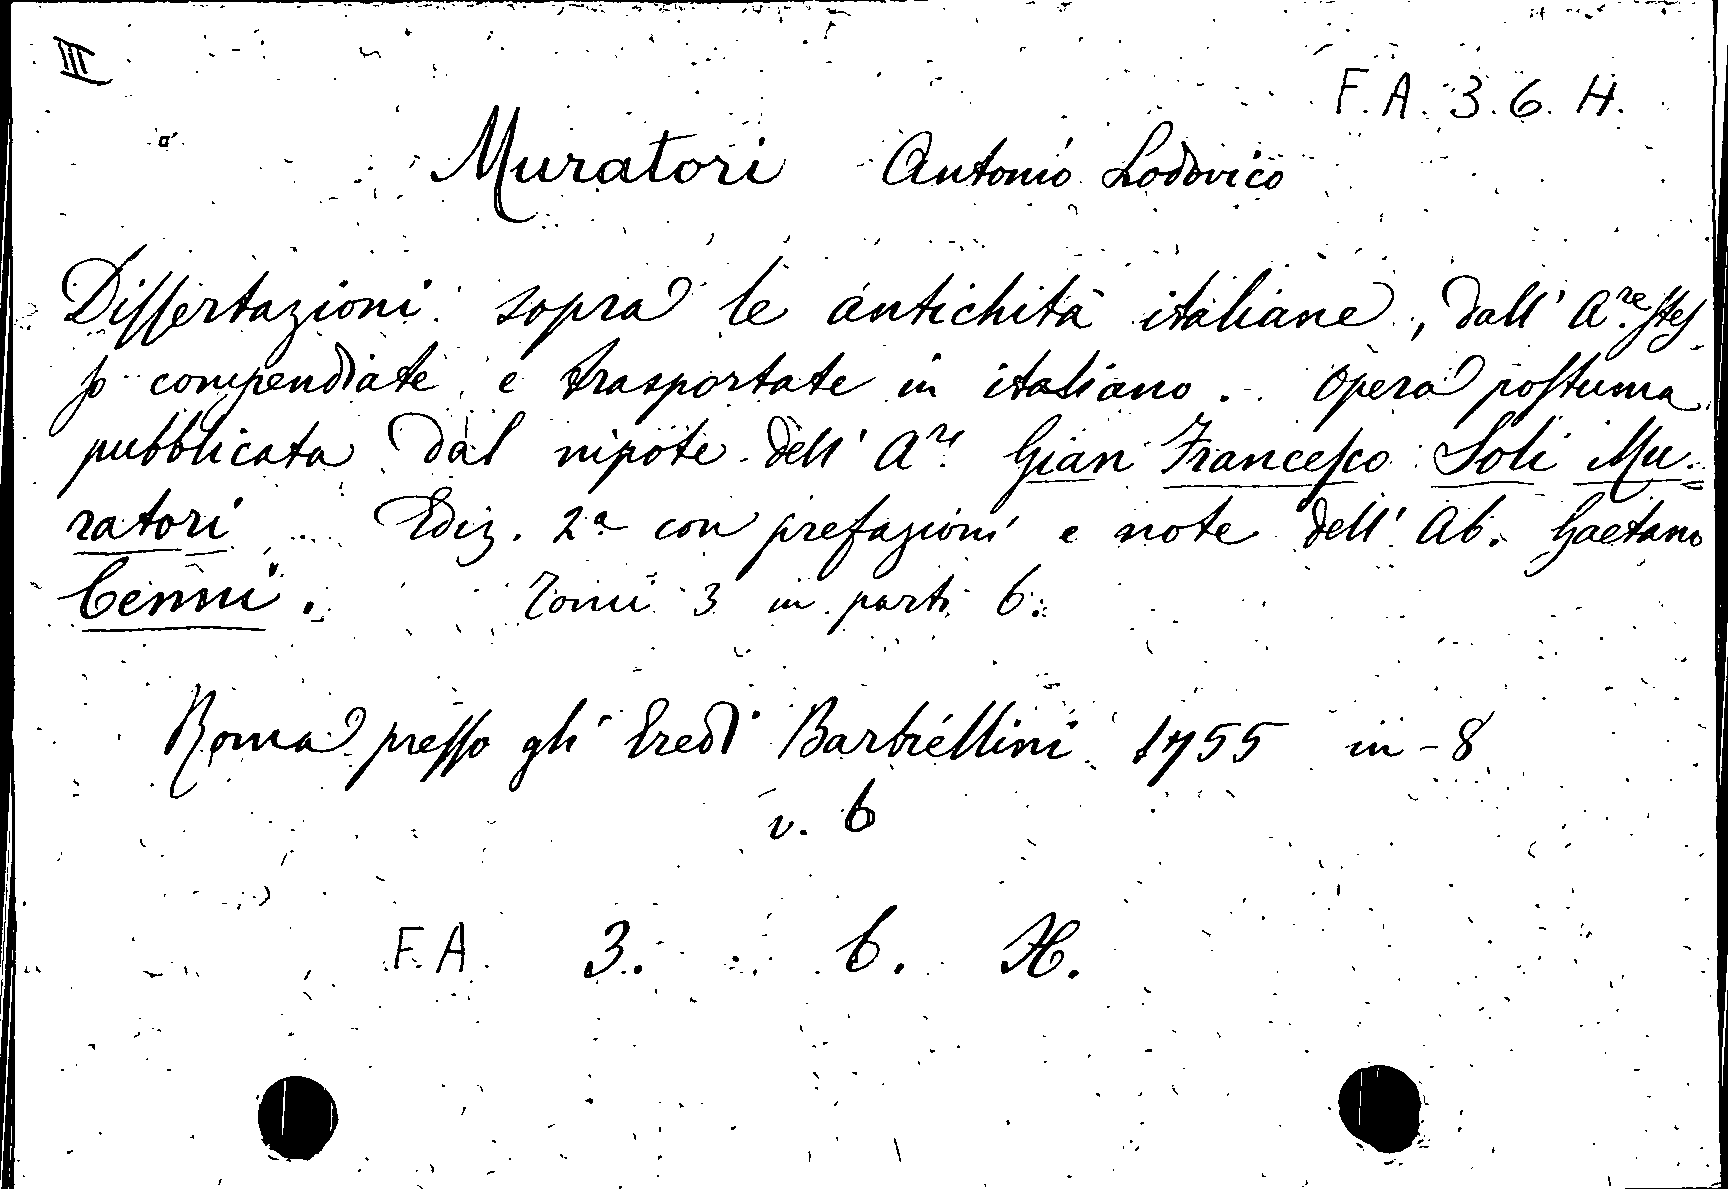 III
F. A. 3. 6. H.
Muratori Antonio Lodovico
Dissertazioni sopra le antichità italiane, dall' A.re stes
so compendiate e trasportate in italiano. Opera postuma
pubblicata dal nipote dell' A.re Gian Francesco Soli Mu=
ratori Ediz. 2a con prefazioni e note dell' Ab. Gaetano
Cenni. Tomi 3 in parti 6.
Roma presso gli Eredi Barbiellini 1755 in-8
v. 6
F. A. 3. 6. H.